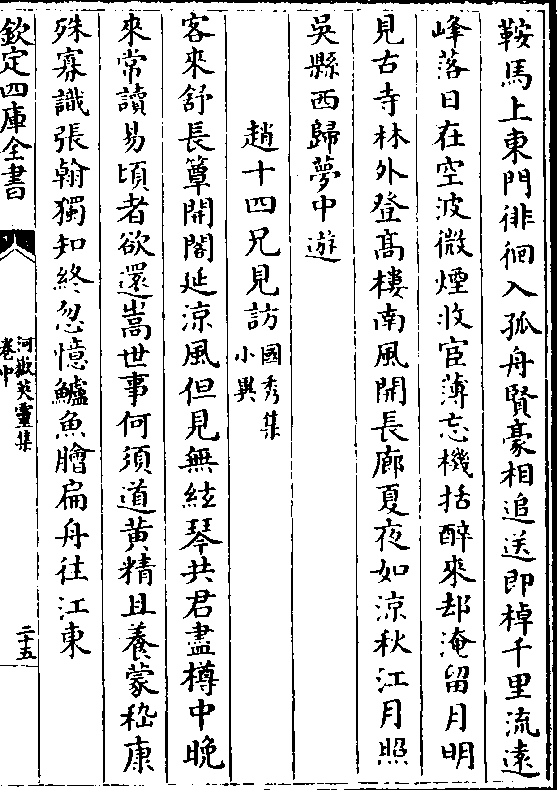 鞍馬上東門徘徊入孤舟賢豪相追送即棹千里流遠
峰落日在空波微煙收宦薄忘機括醉來却淹留月明
見古寺林外登髙樓南風開長廊夏夜如涼秋江月照
吳縣西歸夢中遊
趙十四兄見訪國秀集小異
客來舒長簟開閤延涼風但見無絃琴共君盡樽中晚
來常讀易頃者欲還嵩世事何須道黄精且養蒙嵇康
殊寡識張翰獨知終忽憶鱸魚膾扁舟往江東
欽定四庫全書
河嶽英靈集
卷中
二十五